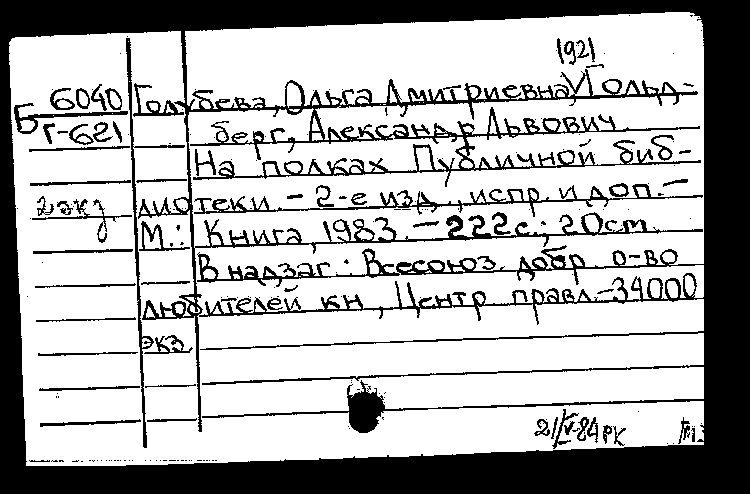 1921
6040 Голубева, Ольга Дмитриевна, Гольд-
Б Г-621 берг, Александр Львович
На полках Публичной биб-
2 экз. лиотеки. - 2-е изд., испр. и доп. -
М.: Книга, 1983. - 222 с.; 20 см.
В надзаг.: Всесоюз. добр. о-во
любителей кн., Центр. правл. - 34000
экз.
21/V-84 РК